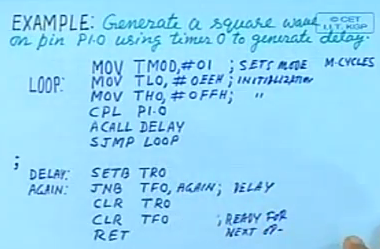 EXAMPLE: Generate a square wave
© CET
I.I.T. KGP
on pin P1.0 using timer 0 to generate delay.
MOV TMOD,#01 ; SETS MODE M-CYCLES
LOOP: MOV TL0, #0EEH ; INITIALIZATION
MOV TH0, #0FFH; "
CPL P1.0
ACALL DELAY
SJMP LOOP
;
DELAY: SETB TR0
AGAIN: JNB TF0, AGAIN; DELAY
CLR TR0
CLR TF0 ; READY FOR
RET NEXT OP-